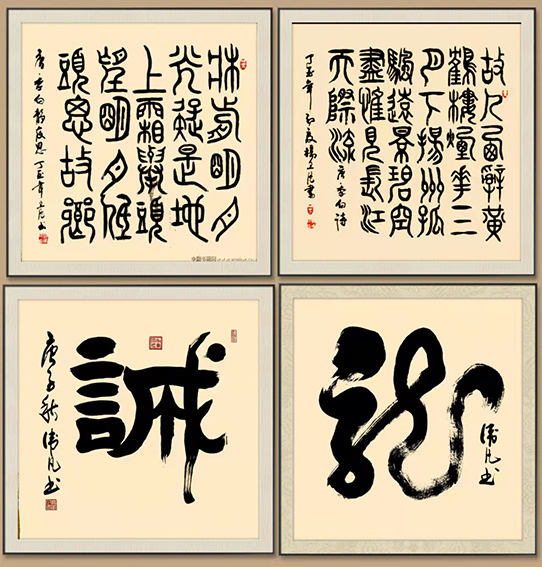 牀前明月
光疑是地
上霜舉頭
望明月低
頭思故鄉
唐李白靜夜思
故人西辭黃
鶴樓煙花三
月下揚州孤
颿遠景碧空
盡惟見長江
天際流
唐李白诗
誠
庚子秋
龍